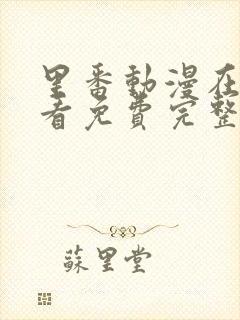 里番動漫在
看免費完整
蘇里堂